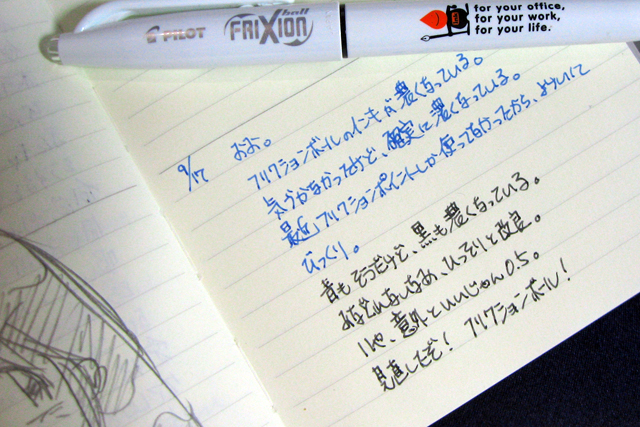 PILOT
ball
FRIXION
for your office,
for your work,
for your life.
9/17 おお。
フリクションボールのインキが濃くなっている。
気づかなかったけど、確実に濃くなっている。
最近フリクションポイントしか使ってなかったから、よけいに
びっくり。
青もそうだけど、黒も濃くなっている。
あなどれないなあ、ひっそりと改良。
いや、意外といいじゃん0.5。
見直したぞ! フリクションボール!